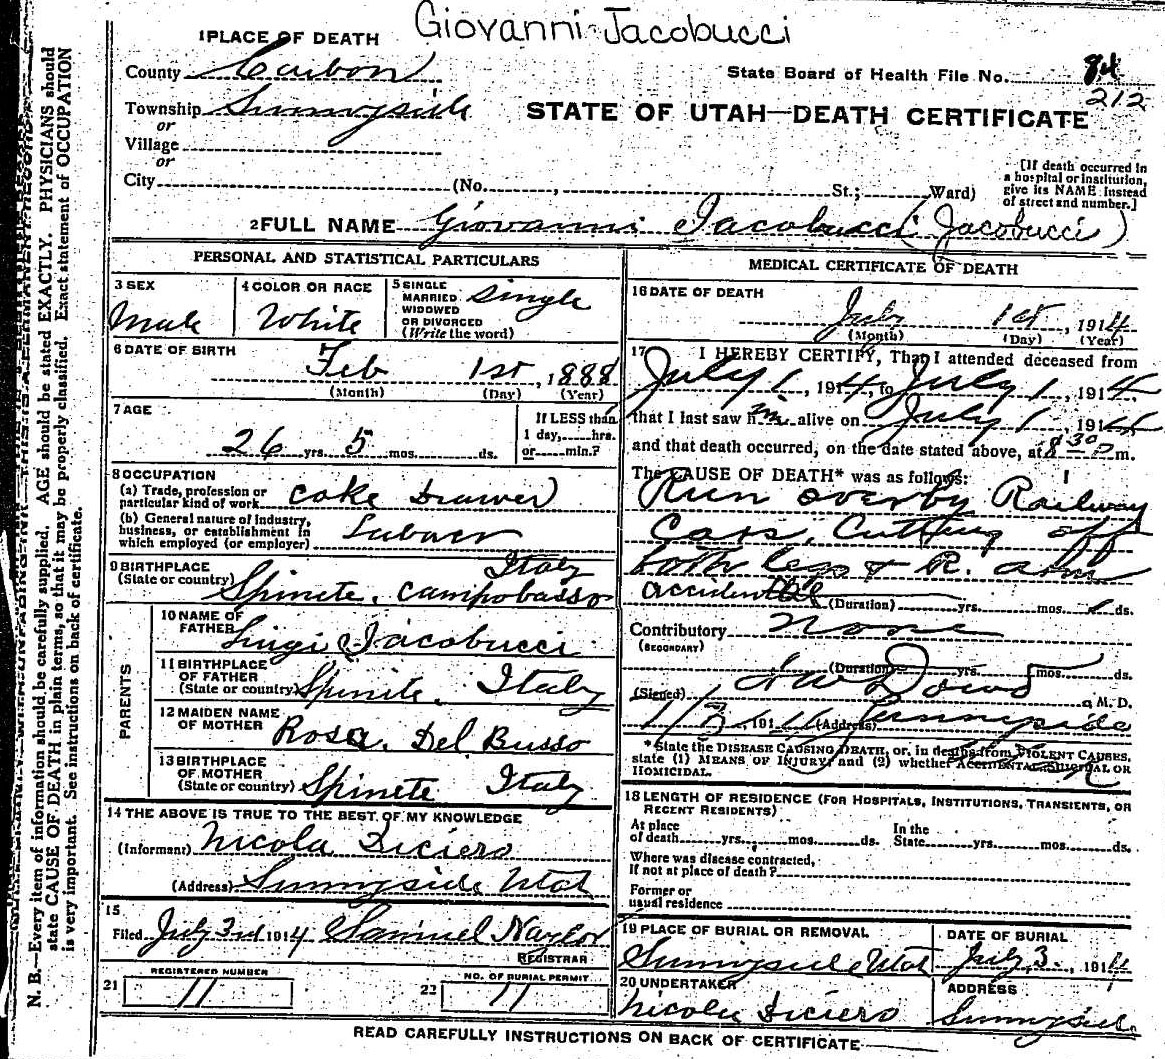 Giovanni Jacobucci
1 PLACE OF DEATH
County Carbon
State Board of Health File No. 84
212
Township Sunnyside
STATE OF UTAH—DEATH CERTIFICATE
or
Village
or
City (No. , St.; Ward)
[If death occurred in a hospital or institution, give its NAME instead of street and number.]
2 FULL NAME Giovanni Iacobucci (Jacobucci)
PERSONAL AND STATISTICAL PARTICULARS
3 SEX
Male
4 COLOR OR RACE
White
5 SINGLE
MARRIED
WIDOWED
OR DIVORCED
(Write the word)
Single
6 DATE OF BIRTH
Feb 1st, 1888
(Month) (Day) (Year)
7 AGE
26 yrs. 5 mos. ds.
If LESS than
1 day, hrs.
or min.?
8 OCCUPATION
(a) Trade, profession or
particular kind of work Coke Drawer
(b) General nature of industry,
business, or establishment in
which employed (or employer) Labaer
9 BIRTHPLACE
(State or country)
Italy
Spinete, Campobasso
PARENTS
10 NAME OF
FATHER Luigi Jacobucci
11 BIRTHPLACE
OF FATHER
(State or country) Spinite, Italy
12 MAIDEN NAME
OF MOTHER Rosa Del Busso
13 BIRTHPLACE
OF MOTHER
(State or country) Spinete Italy
14 THE ABOVE IS TRUE TO THE BEST OF MY KNOWLEDGE
(Informant) Nicola Diciero
(Address) Sunnyside Utah
15
Filed July 3rd 1914 Samuel Naylor
REGISTRAR
REGISTERED NUMBER
21 11
NO. OF BURIAL PERMIT
22 11
MEDICAL CERTIFICATE OF DEATH
16 DATE OF DEATH
July 1st, 1914
(Month) (Day) (Year)
17 I HEREBY CERTIFY, That I attended deceased from
July 1, 1914, to July 1, 1914
that I last saw him alive on July 1, 1914
and that death occurred, on the date stated above, at 8 30 P m.
The CAUSE OF DEATH* was as follows:
Run over by Railway
Cars, Cutting off
both legs & R. arm
accidental
(Duration) yrs. mos. ds.
Contributory None
(SECONDARY)
(Duration) yrs. mos. ds.
(Signed) Dowd, M. D.
191 (Address) Sunnyside
*State the DISEASE CAUSING DEATH, or, in deaths from VIOLENT CAUSES,
state (1) MEANS OF INJURY; and (2) whether ACCIDENTAL, SUICIDAL OR
HOMICIDAL.
18 LENGTH OF RESIDENCE (FOR HOSPITALS, INSTITUTIONS, TRANSIENTS, OR
RECENT RESIDENTS)
At place
of death yrs. mos. ds.
In the
State yrs. mos. ds.
Where was disease contracted,
if not at place of death?
Former or
usual residence
19 PLACE OF BURIAL OR REMOVAL
Sunnyside Utah
DATE OF BURIAL
July 3, 1914
20 UNDERTAKER
Nicola Diciero
ADDRESS
Sunnyside
READ CAREFULLY INSTRUCTIONS ON BACK OF CERTIFICATE
N. B.—Every item of information should be carefully supplied. AGE should be stated EXACTLY. PHYSICIANS should
state CAUSE OF DEATH in plain terms, so that it may be properly classified. Exact statement of OCCUPATION
is very important. See instructions on back of certificate.